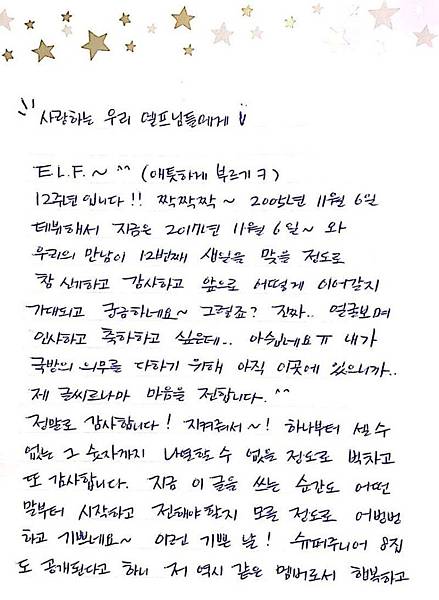 사랑하는 우리 엘프님들에게
E.L.F.~ ^^ (애틋하게 부르기 ㅋ)
12주년입니다!! 짝짝짝~ 2005년 11월 6일
데뷔해서 지금은 2017년 11월 6일~ 와
우리의 만남이 12번째 생일을 맞을 정도로
참 신기하고 감사하고 앞으로 어떻게 이어갈지
기대되고 궁금하네요~ 그렇죠? 진짜.. 얼굴보며
인사하고 축하하고 싶은데.. 아쉽네요ㅠ 내가
국방의 의무를 다하기 위해 아직 이곳에 있으니까..
제 글씨로나마 마음을 전합니다.^^
정말로 감사합니다! 지켜줘서~! 하나부터 셀 수
없는 그 숫자까지 나열할 수 없을 정도로 벅차고
또 감사합니다. 지금 이 글을 쓰는 순간도 어떤
말부터 시작하고 전해야할지 모를 정도로 어벙벙
하고 기쁘네요~ 이런 기쁜 날! 슈퍼주니어 8집
도 공개된다고 하니 저 역시 같은 멤버로서 행복하고